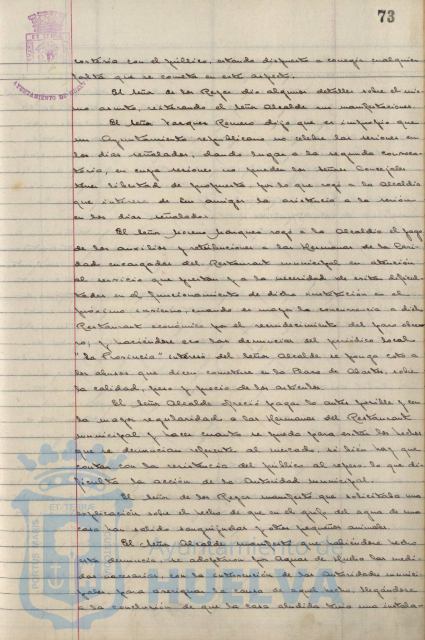 73
AYUNTAMIENTO DE HUELVA
cortesía con el público, estando dispuesto a corregir cualquier
falta que se cometa en este aspecto.
El Señor de los Reyes dió algunos detalles sobre el mis-
mo asunto, reiterando el Señor Alcalde sus manifestaciones.
El Señor Vazquez Romero dijo que es impropio que
un Ayuntamiento republicano no celebre las sesiones en
los dias señalados, dando lugar a la segunda convoca-
toria, en cuyas sesiones no pueden los Señores Concejales
tener libertad de propuesta por lo que rogó a la Alcaldia
que interese de sus amigos la asistencia a la sesión
en los dias señalados.
El Señor Moreno Marquez rogó a la Alcaldia el pago
de los auxilios y retribuciones a las Hermanas de la Cari-
dad encargadas del Restaurant municipal en atención
al servicio que prestan y a la necesidad de evitar dificul-
tades en el funcionamiento de dicha institución en el
próximo invierno, cuando es mayor la concurrencia a dicho
Restaurant económico por el recrudecimiento del paro obre-
ro; y haciéndose eco las denuncias del periódico local
"La Provincia" interesó del Señor Alcalde se ponga coto a
los abusos que dicen cometerse en la Plaza de Abastos, sobre
la calidad, peso y precio de los artículos.
El Señor Alcalde ofreció pagar lo antes posible y con
la mayor regularidad a las Hermanas del Restaurant
municipal y hacer cuanto se pueda para evitar los hechos
que se denuncian referente al mercado, si bien hay que
contar con la resistencia del público al repeso lo que di-
ficulta la acción de la Autoridad municipal.
El Señor de los Reyes manifestó que solicitaba una
explicación sobre el hecho de que en el grifo del agua de una
casa han salido sanguijuelas y otros pequeños animales.
El Señor Alcalde manifestó que habiéndose hecho
esta denuncia, se adoptaron por Aguas de Huelva las medi-
das necesarias, con la intervención de las Autoridades munici-
pales para averiguar la causa de aquel hecho, llegándose
a la conclusión de que la casa aludida tenia una instala-
Ayuntamiento de
HUELVA